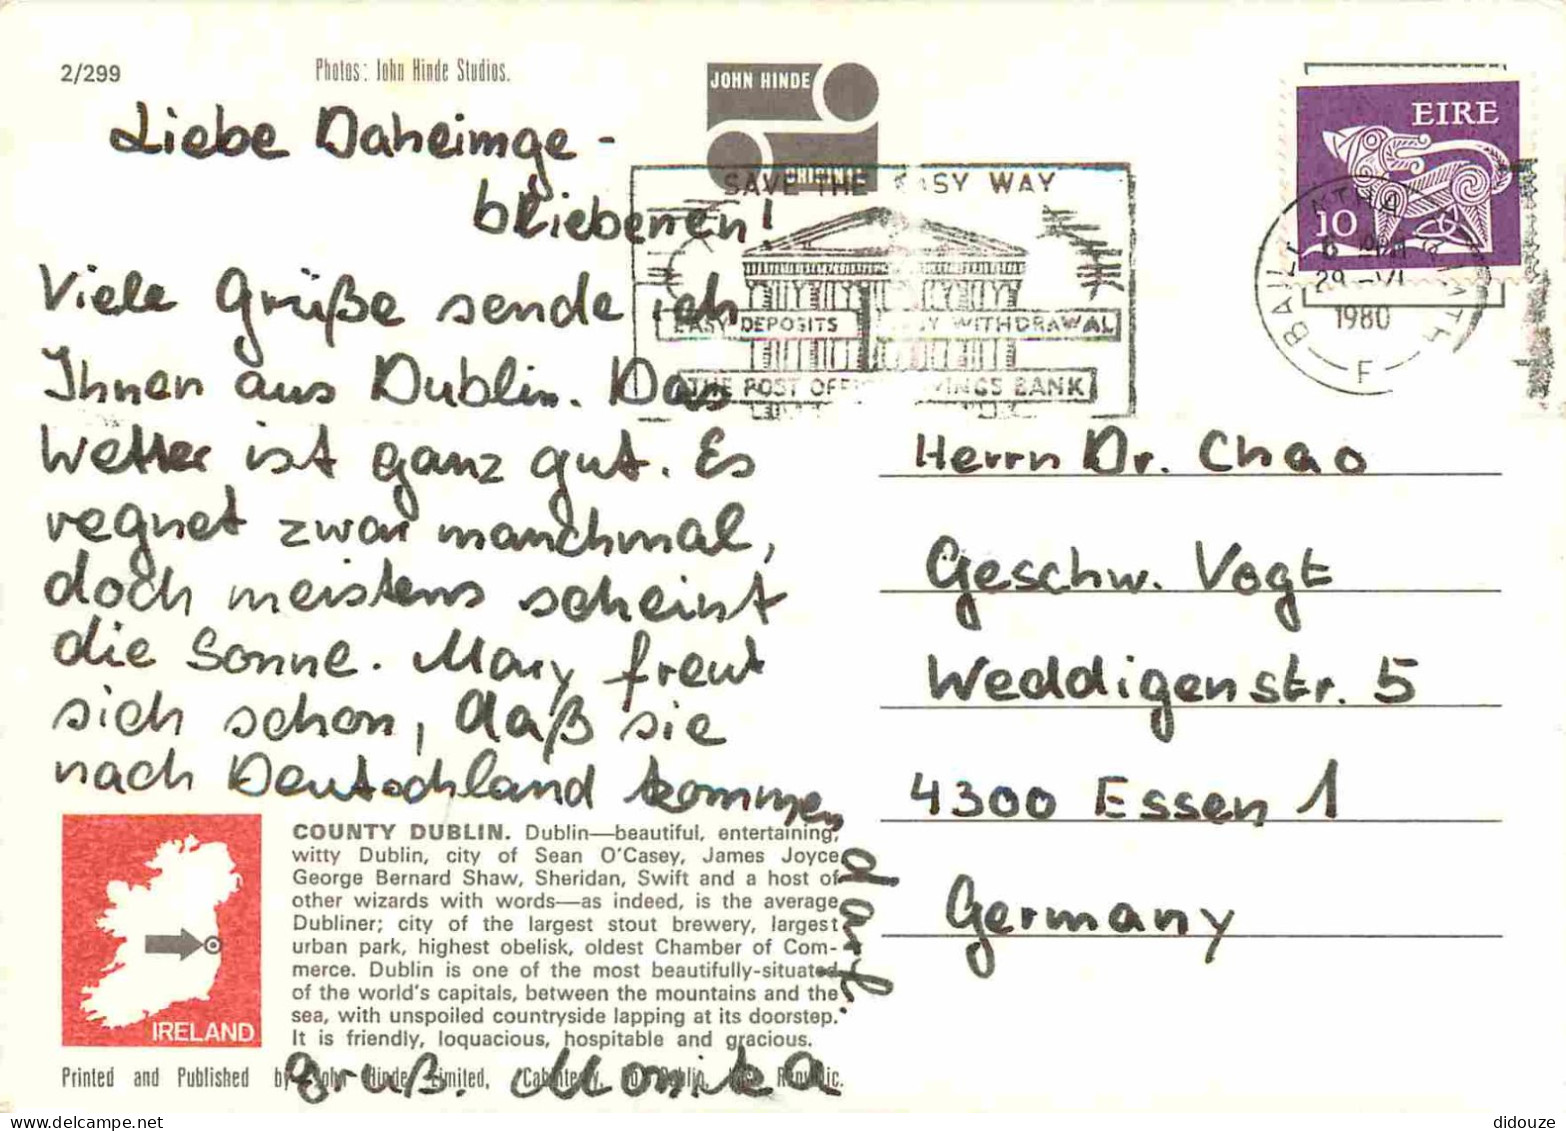 2/299
Photos: John Hinde Studios.
JOHN HINDE
ORIGINAL
EIRE
10
SAVE THE EASY WAY
EASY DEPOSITS
EASY WITHDRAWAL
THE POST OFFICE SAVINGS BANK
1980
F
Liebe Daheimge-
bliebenen!
Viele Grüße sende ich
Ihnen aus Dublin. Das
Wetter ist ganz gut. Es
regnet zwar manchmal,
doch meistens scheint
die Sonne. Mary freut
sich schon, daß sie
nach Deutschland kommen
darf.
Gruß. Monika
Herrn Dr. Chao
Geschw. Vogt
Weddigenstr. 5
4300 Essen 1
Germany
IRELAND
COUNTY DUBLIN. Dublin—beautiful, entertaining,
witty Dublin, city of Sean O'Casey, James Joyce
George Bernard Shaw, Sheridan, Swift and a host of
other wizards with words—as indeed, is the average
Dubliner; city of the largest stout brewery, largest
urban park, highest obelisk, oldest Chamber of Com-
merce. Dublin is one of the most beautifully-situated
of the world's capitals, between the mountains and the
sea, with unspoiled countryside lapping at its doorstep.
It is friendly, loquacious, hospitable and gracious.
Printed and Published by John Hinde Limited, Cabinteely, Co. Dublin, Republic.
didouze